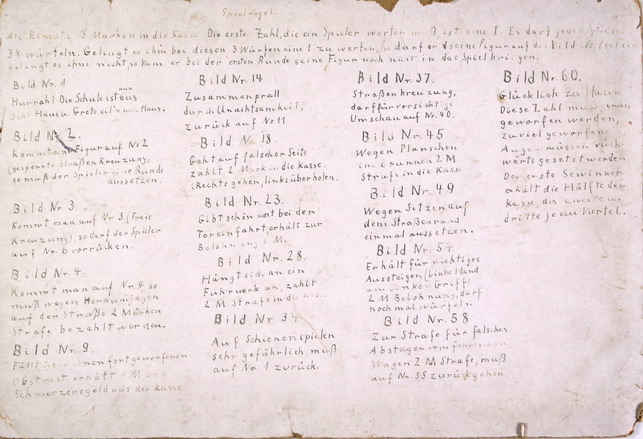 Spielregel.
Als Einsatz 3 Marken in die Kasse. Die erste Zahl, die ein Spieler werfen muß, ist eine 1. Es darf jeder
3x würfeln. Gelingt es ihm bei diesen 3 Würfen eine 1 zu werfen, so darf er seine Figur auf das Bild
gelingt es ihm nicht, so kann er bei der ersten Runde seine Figur noch nicht in das Spiel bringen.
Bild Nr. 1
Hurrah! Die Schule ist aus
nun
Hans u. Gretel n Haus.
Bild Nr. 2.
Kommt eine Figur auf No 2
(gesperrte Straßenkreuzung,
so muß der Spieler eine Runde
aussetzen.
Bild Nr. 3.
Kommt man auf Nr 3 (Freie
Kreuzung) so darf der Spieler
auf Nr. 6 vorrücken.
Bild Nr. 4.
Kommt man auf Nr. 4 so
muß wegen Herumjagen
auf der Straße 2 Marken
Strafe bezahlt werden.
Bild Nr. 9.
Fällt über einen fortgeworfenen
Obstrest erhält M
Schmerzensgeld aus der Kasse.
Bild Nr. 14
Zusammenprall
durch Unachtsamkeit,
zurück auf No 11
Bild No 18.
Geht auf falscher Seite
zahlt 2 M in die Kasse.
(Rechts gehen, links überholen.
Bild Nr. 23.
Gibt schön acht bei den
Toreinfahrt, erhält zur
Belohnung M.
Bild Nr. 28.
Hängt sich an ein
Fuhrwerk an, zahlt
2 M Strafe in die
Bild Nr. 34
Auf Schienen spielen
sehr gefährlich, muß
auf Nr 1 zurück.
Bild Nr. 37.
Straßenkreuzung,
darf für vorsichtige
Umschau auf Nr. 40.
Bild Nr. 45
Wegen Planschen
im Brunnen 2 M
Strafe in die Kasse
Bild Nr. 49
Wegen Sitzen auf
dem Straßenrand
einmal aussetzen.
Bild Nr. 54
Erhält für richtiges
Aussteigen (linke Hand
am linken Griff)
2 M Belohnung, darf
nochmal würfeln
Bild Nr. 58
Zur Strafe für falsches
Absteigen vom fahrenden
Wagen 2 M Strafe, muß
auf Nr. 55 zurückgehen.
Bild Nr. 60.
Glücklich zu Haus
Diese Zahl muß genau
geworfen werden,
zuviel geworfene
Augen müssen rück-
wärts gesetzt werden.
Der erste Gewinner
erhält die Hälfte der
Kasse, der zweite u.
dritte je ein Viertel.